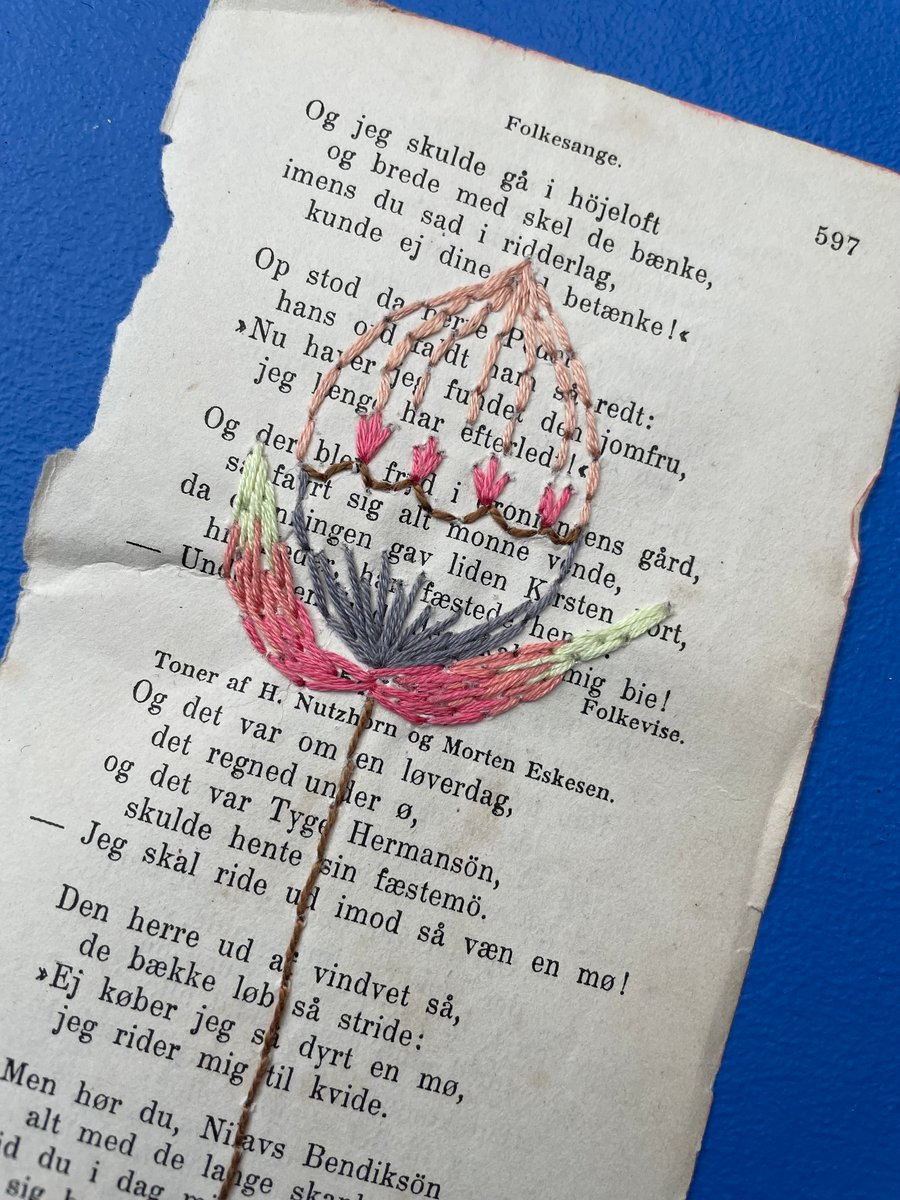 Folkesange.
597
Og jeg skulde gå i höjeloft
og brede med skel de bænke,
imens du sad i ridderlag,
kunde ej dine betænke!«
Op stod da herre
hans ord faldt ham så redt:
»Nu haver jeg fundet den jomfru,
jeg længe har efterledt!«
Og der blev fryd i dronningens gård,
så favrt sig alt monne vende,
da dronningen gav liden Kirsten bort,
har fæstet hende.
— mig bie!
Folkevise.
Toner af H. Nutzhorn og Morten Eskesen.
Og det var om en løverdag,
det regned under ø,
og det var Tyge Hermansön,
skulde hente sin fæstemö.
— Jeg skal ride ud imod så væn en mø!
Den herre ud af vindvet så,
de bække løb så stride:
»Ej køber jeg så dyrt en mø,
jeg rider mig til kvide.
Men hør du, Nilavs Bendiksön
alt med de lange
du i dag
sig